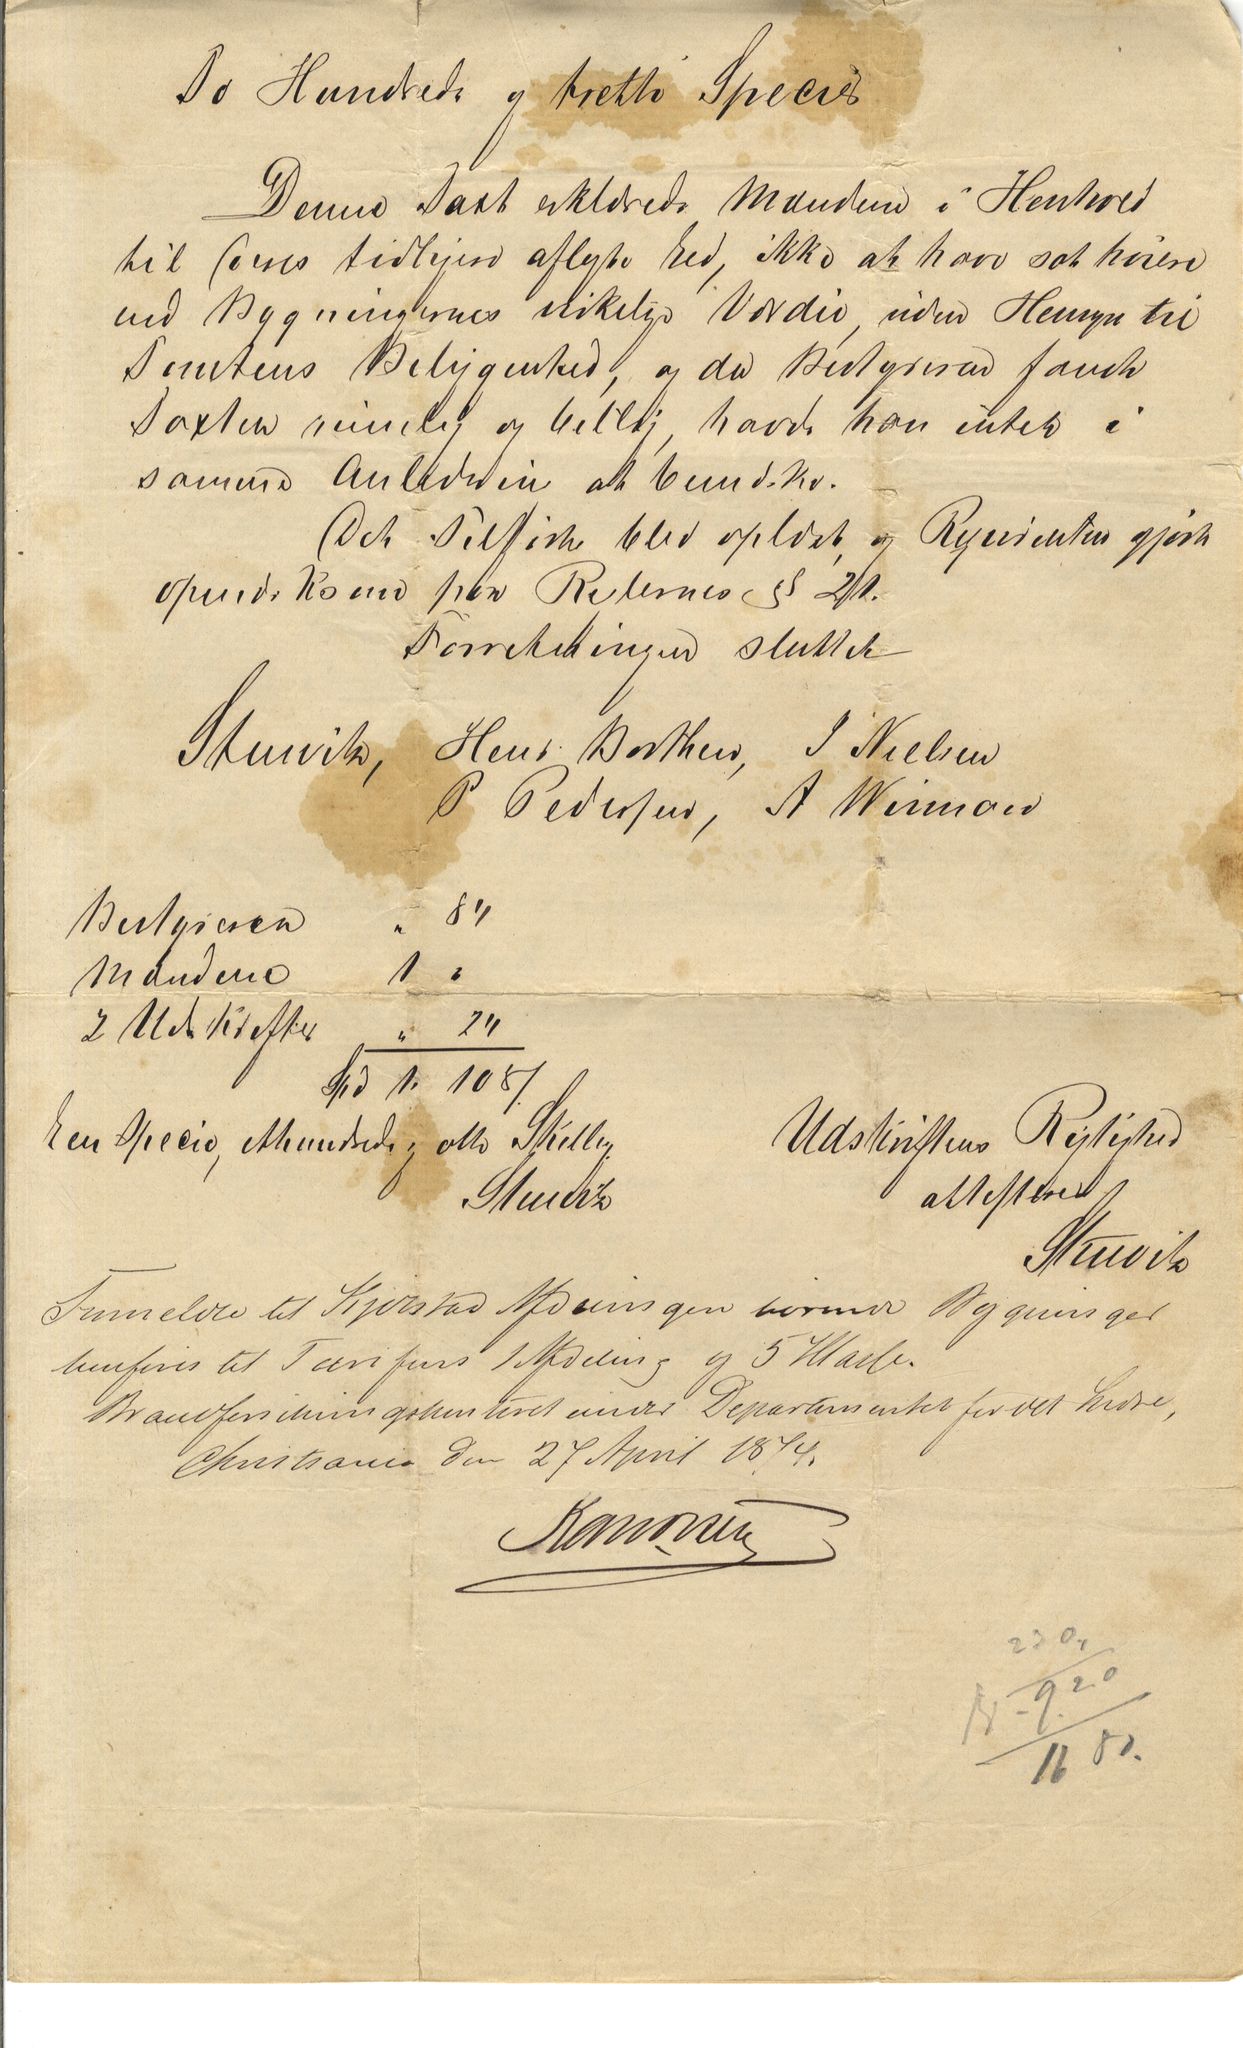 To Hundrede og tretti Species
Denne Taxt erklærede Mændene i Henhold
til deres tidligere aflagte Ed, ikke at have sat høiere
end Bygningernes virkelige Værdie, uden Hensyn til
Tomtens Beliggenhed, og da Bestyreren fandt
Taxten rimelig og billig, havde han intet i
samme Anledning at bemærke.
Det Tilførte blev oplæst, og Reqvirenten gjort
opmærksom paa Reglernes § 21.
Forretningen sluttet
Stuwitz, Henr. Borthen, J Nielsen
P Pedersen, A Weimoen
Bestyreren " 84
Mændene 1 "
2 Udskrifter " 24
Spd 1. 108/
Een Specie, Ethundrede og otte Skilling
Udskriftens Rigtighed
Stuwitz
attesterer
Stuwitz
Anmeldte til Afdelingen Bygninger
henføres til Tarifens 1 Afdeling og 5 Klasse.
Brandforsikringskontoret under Departementet for det Indre,
Christiania den 27 April 1874.
230,
9.20
11 80.